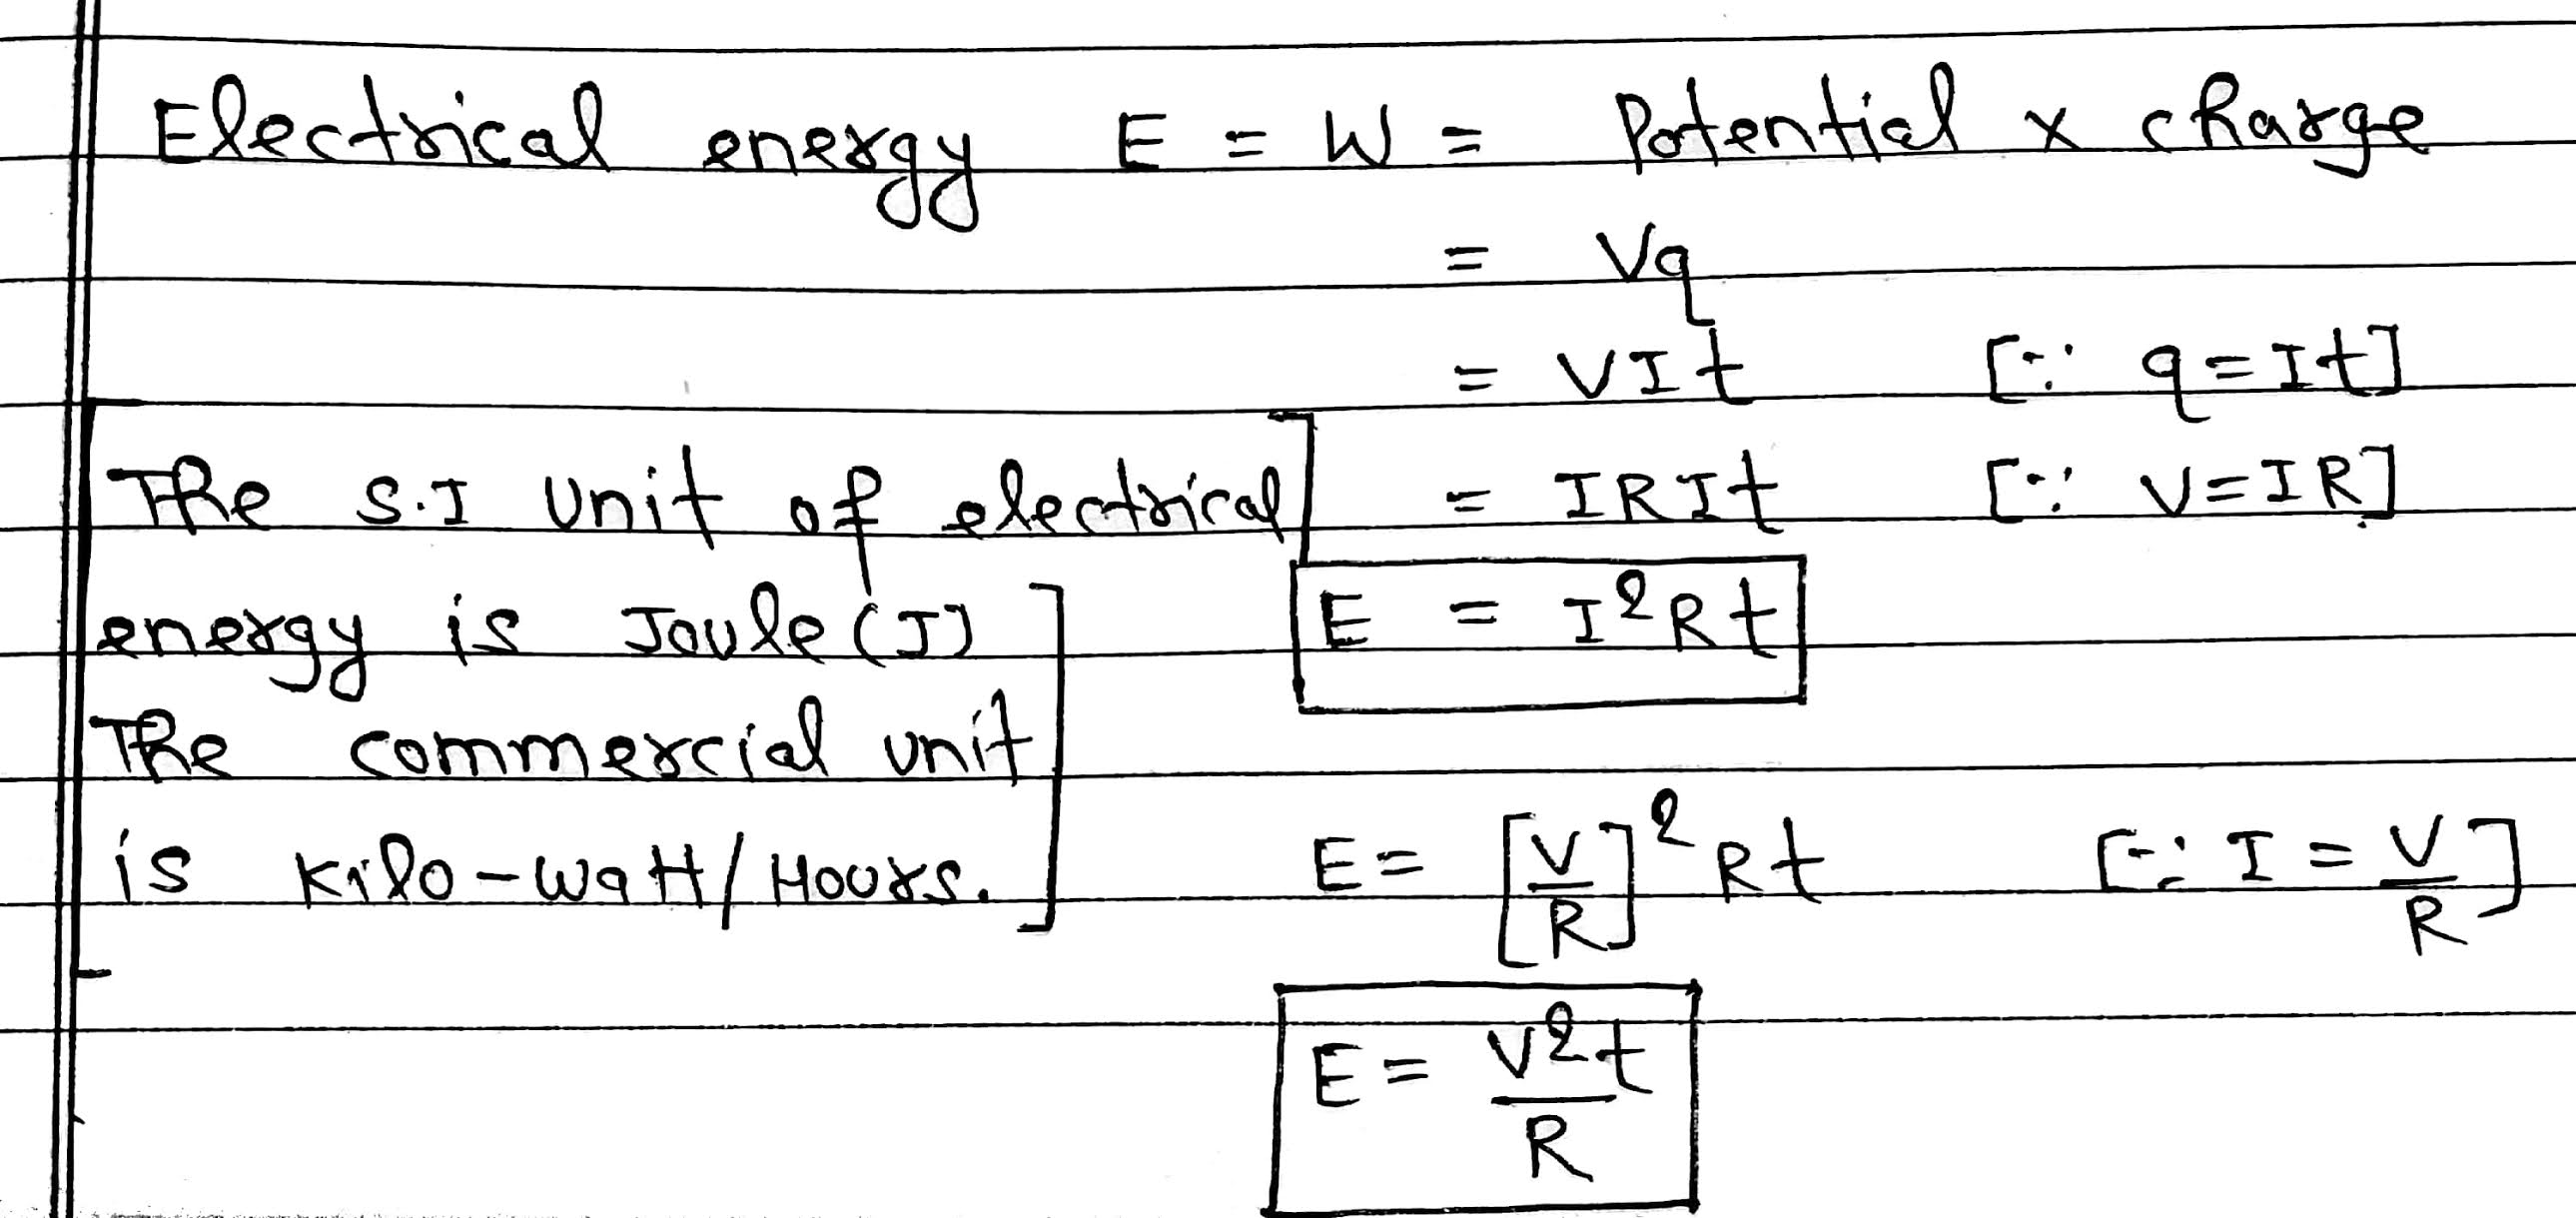 Electrical energy E = W = Potential x charge
= Vq
= VIt [∵ q=It]
= IRIt [∵ V=IR]
E = I²Rt
The S.I unit of electrical
energy is Joule (J)
The commercial unit
is Kilo-watt/Hours.
E = [V/R]² Rt [∵ I = V/R]
E = V²t/R